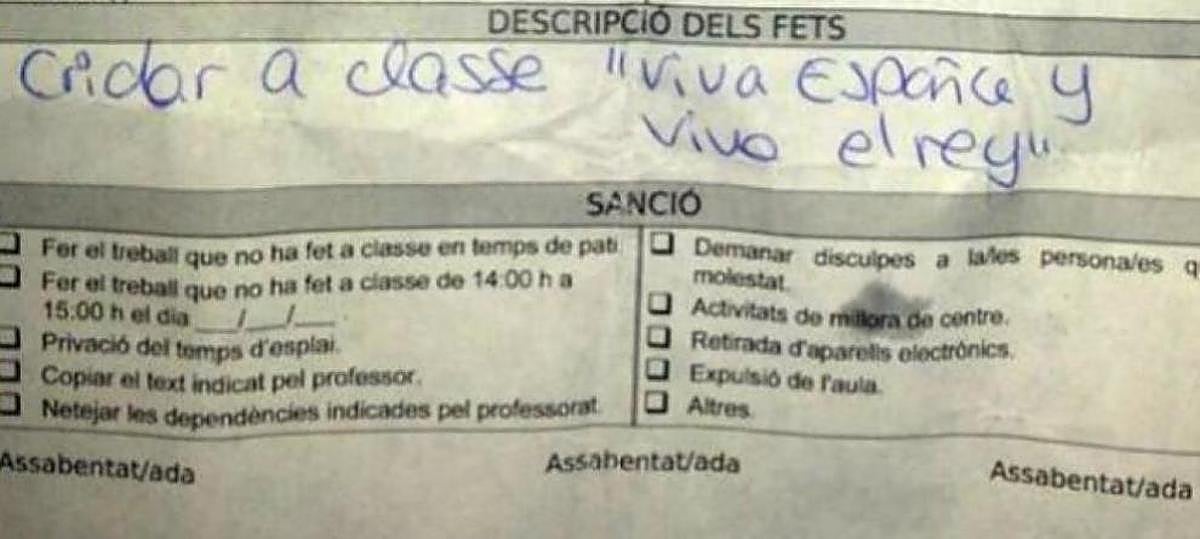 DESCRIPCIÓ DELS FETS
Cridar a classe "Viva España y
Viva el rey"
SANCIÓ
Fer el treball que no ha fet a classe en temps de pati
Fer el treball que no ha fet a classe de 14:00 h a
15:00 h el dia ___/___/___
Privació del temps d'esplai.
Copiar el text indicat pel professor.
Netejar les dependències indicades pel professorat.
Demanar disculpes a la/les persona/es q
molestat.
Activitats de millora de centre.
Retirada d'aparells electrònics.
Expulsió de l'aula.
Altres.
Assabentat/ada
Assabentat/ada
Assabentat/ada